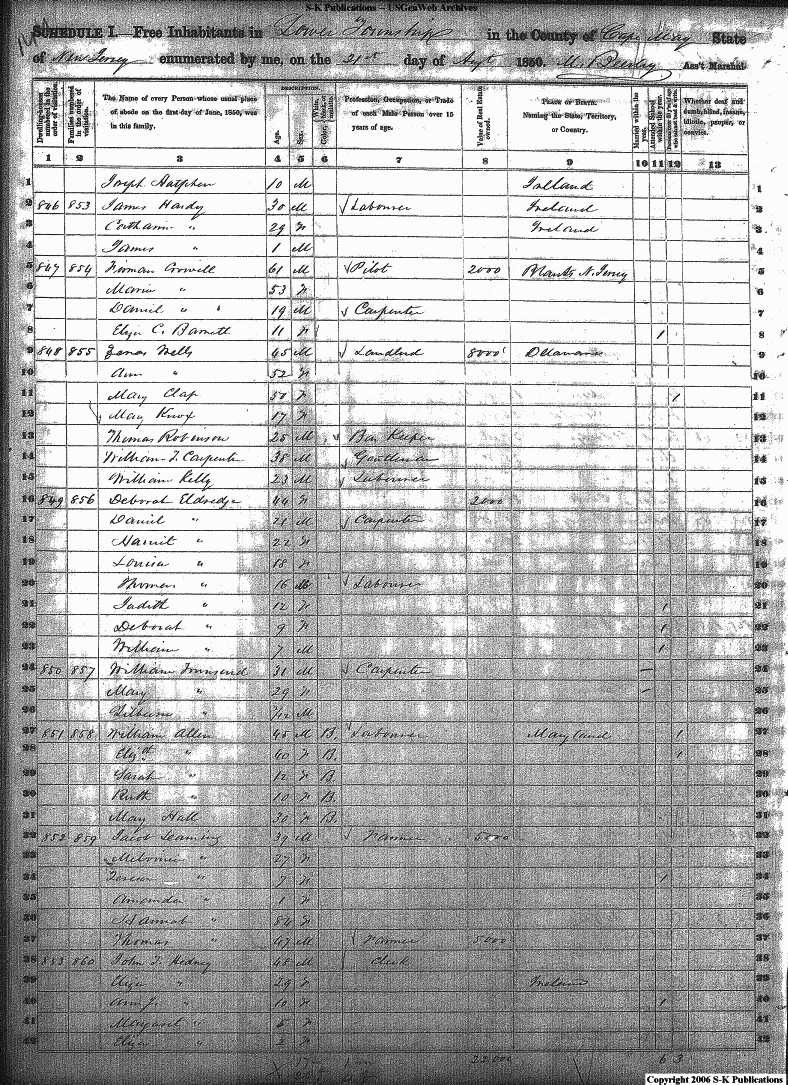 S-K Publications -- USGenWeb Archives
SCHEDULE I. Free Inhabitants in Lower Township in the County of Cape May State
of New Jersey enumerated by me, on the 21st day of Augt 1850. Ass't Marshal
DESCRIPTION.
Dwelling-houses numbered in the order of visitation. Families numbered in the order of visitation. The Name of every Person whose usual place of abode on the first day of June, 1850, was in this family. Age. Sex. Color, White, black, or mulatto. Profession, Occupation, or Trade of each Male Person over 15 years of age. Value of Real Estate owned. PLACE OF BIRTH. Naming the State, Territory, or Country. Married within the year. Attended School within the year. Whether deaf and dumb, blind, insane, idiotic, pauper, or convict.
1 2 3 4 5 6 7 8 9 10 11 12 13
1 Joseph 10 M 1
2 846 853 James Hardy 30 M Labourer Ireland 2
3 " 29 F Ireland 3
4 James " 1 M 4
5 847 854 Crowell 61 M Pilot 2000 N. Jersey 5
6 Maria " 53 F 6
7 Daniel " " 19 M Carpenter 7
8 Eliza C. Barnett 11 F 1 8
9 848 855 Wells 45 M Landlord 8000 Delaware 9
10 Ann " 52 F 10
11 Mary Clap 50 F 1 11
12 Mary Knox 17 F 12
13 Thomas Robinson 25 M Bar Keeper 13
14 William T. Carpenter 38 M Gentleman 14
15 William Kelly 23 M Labourer 15
16 849 856 Deborah Eldredge 44 F 2000 16
17 Daniel " 21 M Carpenter 17
18 Harriet " 22 F 18
19 Louisa " 18 F 19
20 Thomas " 16 M Labourer 20
21 Judith " 12 F 1 21
22 Deborah " 9 F 1 22
23 William " 7 M 1 23
24 850 857 William Townsend 31 M Carpenter – 24
25 Mary " 29 F – 25
26 " 7/12 M 26
27 851 858 William Allen 45 M B. Labourer Maryland 1 27
28 Elizth " 40 F B. 1 28
29 Sarah " 12 F B. 29
30 Ruth " 10 F B. 30
31 Mary Hall 30 F B. 31
32 852 859 Jacob Leaming 39 M Farmer 5000 32
33 " 27 F 33
34 " 7 F 1 34
35 Amanda " 1 F 35
36 Hannah " 84 F 36
37 Thomas " 47 M Farmer 5000 37
38 853 860 John T. 48 M Clerk 38
39 Eliza " 29 F Ireland 39
40 Ann J. " 10 F 1 40
41 Margaret " 5 F 41
42 Eliza " 2 F 42
22000 6 3
Copyright 2006 S-K Publications